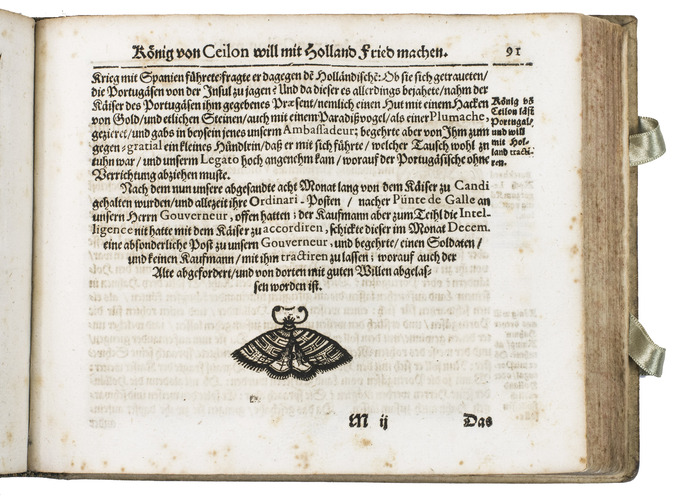 König von Ceilon will mit Holland Fried machen. 91
Krieg mit Spanien führete/fragte er dagegen dẽ Holländischẽ: Ob sie sich getraueten/
die Portugäsen von der Insul zu jagen? Und da dieser es allerdings bejahete/nahm der
Käiser des Portugäsen ihm gegebenes Præsent/nemlich einen Hut mit einem Hacken
von Gold/und etlichen Steinen/auch mit einem Paradißvogel/als einer Plumache,
gezieret/und gabs in beysein jenes unserm Ambassadeur; begehrte aber von Ihm zum
gegen-gratial ein kleines Hündlein/daß er mit sich führte/ welcher Tausch wohl zu
tuhn war/ und unserm Legato hoch angenehm kam/ worauf der Portugäsische ohne
Verrichtung abziehen muste.
König võ
Ceilon läst
Portugal/
und will
mit Hol-
land tracti-
ren.
Nach dem nun unsere abgesandte acht Monat lang von dem Käiser zu Candi
gehalten wurden/und allezeit ihre Ordinari-Posten / nacher Pünte de Galle an
unsern Herrn Gouverneur, offen hatten; der Kaufmann aber zum Teihl die Intel-
ligence nit hatte mit dem Käiser zu accordiren, schickte dieser im Monat Decem.
eine absonderliche Post zu unserm Gouverneur, und begehrte/ einen Soldaten /
und keinen Kaufmann / mit ihm tractiren zu lassen; worauf auch der
Alte abgefordert/und von dorten mit guten Willen abgelas-
sen worden ist.
M ij Das